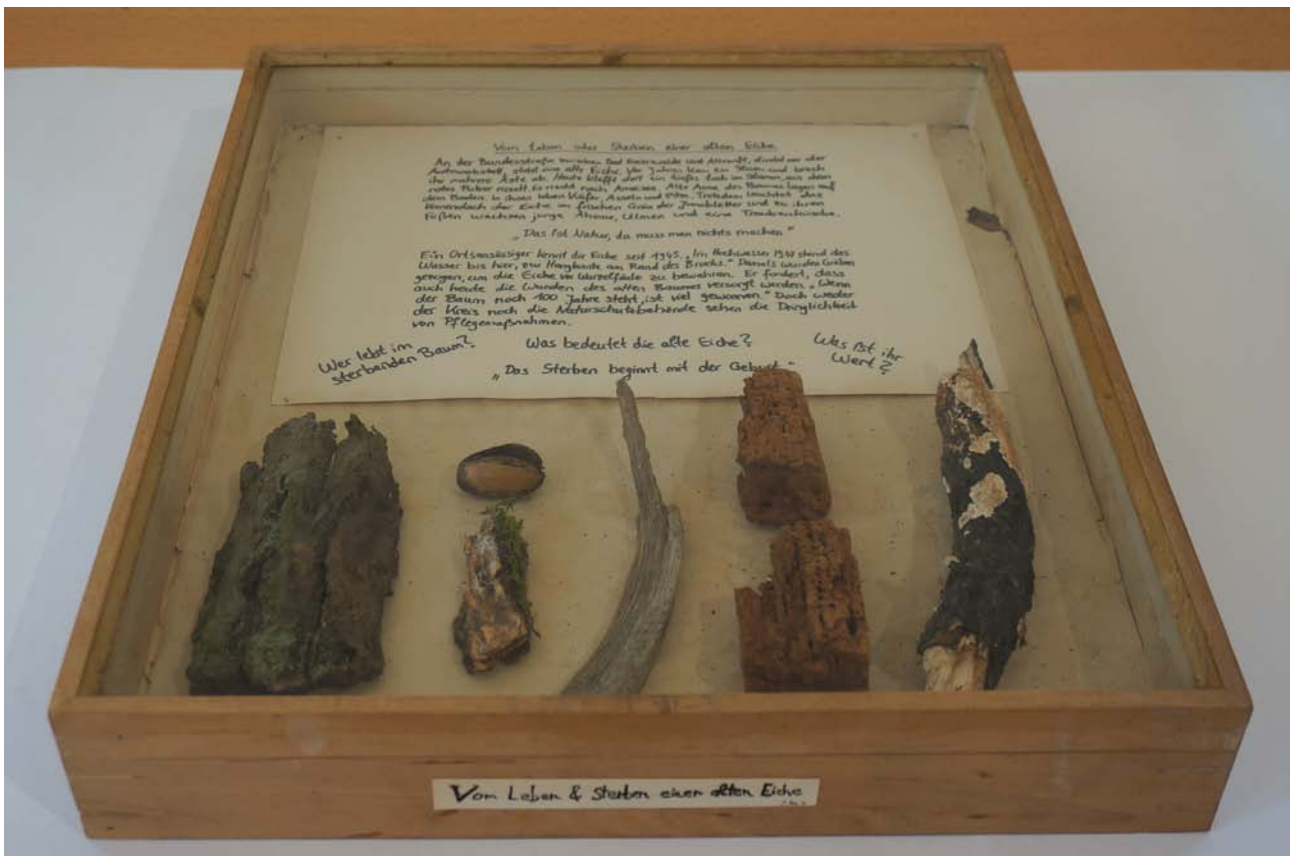 Vom Leben oder Sterben einer alten Eiche
An der Bundesstraße zwischen Bad Freienwalde und Altranft, direkt vor der
Autowerkstatt, steht eine alte Eiche. Vor Jahren kam ein Sturm und brach
ihr mehrere Äste ab. Heute klafft dort ein tiefes Loch im Stamm, aus dem
rotes Pulver rieselt. Es riecht nach Ameisen. Alte Arme des Baumes liegen auf
dem Boden. In ihnen leben Käfer, Asseln und Pilze. Trotzdem leuchtet das
der Eiche im frischen Grün der Jungblätter und zu ihren
Füßen wachsen junge Ahorne, Ulmen und eine Traubenkirsche.
„Das ist Natur, da muss man nichts machen"
Ein Ortsansässiger kennt die Eiche seit 1945. „Im Hochwasser 1947 stand das
Wasser bis hier, zur Hangkante am Rand des Bruchs." Damals wurden Gräben
gezogen, um die Eiche vor Wurzelfäule zu bewahren. Er fordert, dass
auch heute die Wunden des alten Baumes versorgt werden. „Wenn
der Baum noch 100 Jahre steht, ist viel gewonnen." Doch weder
der Kreis noch die Naturschutzbehörde sehen die Dringlichkeit
von Pflegemaßnahmen.
Wer lebt im
sterbenden Baum?
Was bedeutet die alte Eiche?
Was ist ihr
Wert?
„Das Sterben beginnt mit der Geburt"
Vom Leben & Sterben einer alten Eiche